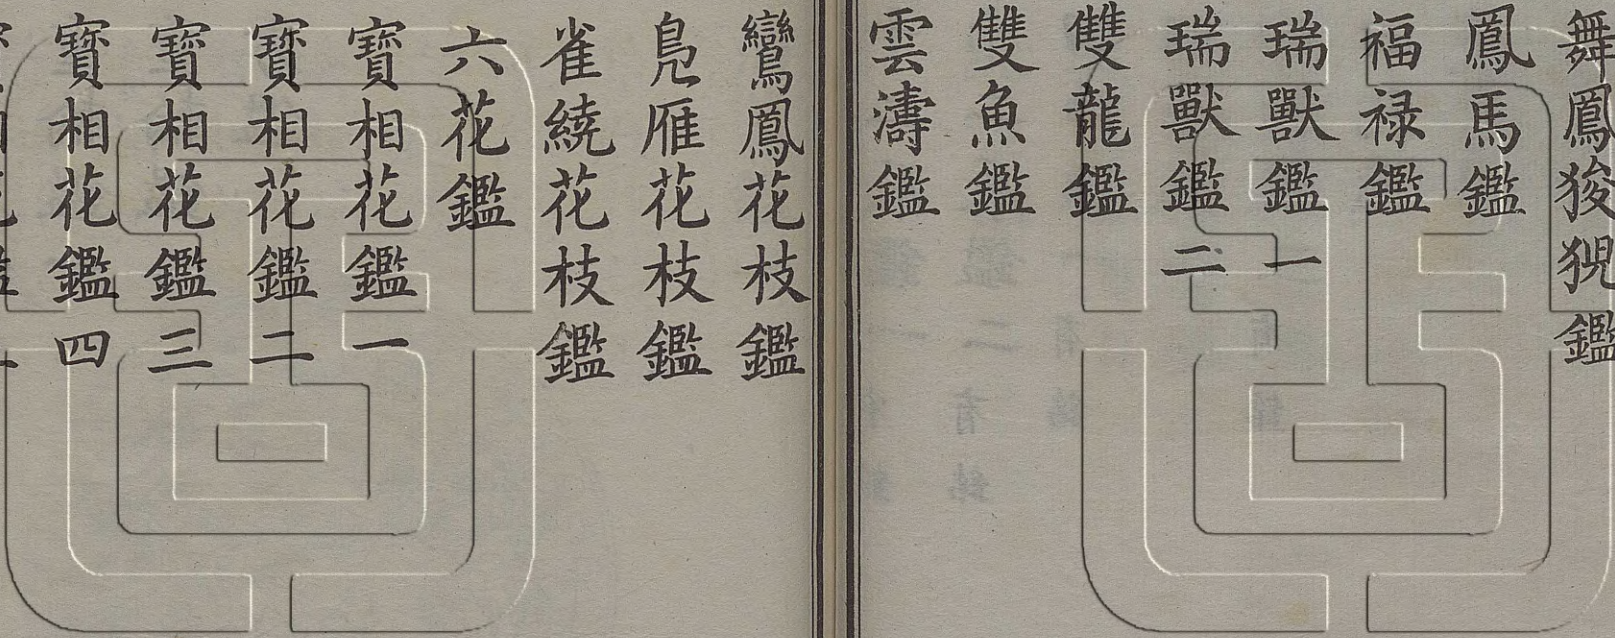 舞鳳狻猊鑑
鳳馬鑑
福禄鑑
瑞獸鑑一
瑞獸鑑二
雙龍鑑
雙魚鑑
雲濤鑑
鸞鳳花枝鑑
鳧雁花枝鑑
雀繞花枝鑑
六花鑑
寶相花鑑一
寶相花鑑二
寶相花鑑三
寶相花鑑四